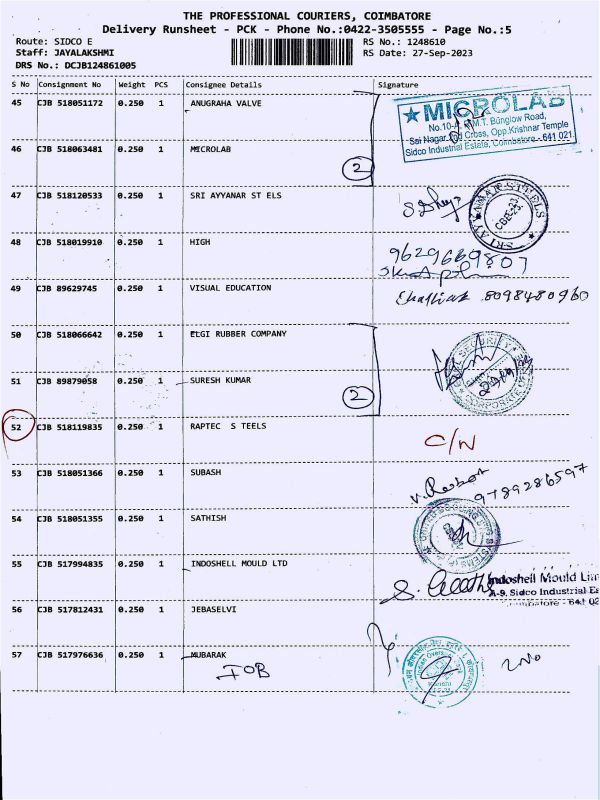 THE PROFESSIONAL COURIERS, COIMBATORE
Delivery Runsheet - PCK - Phone No.:0422-3505555 - Page No.:5
Route: SIDCO E
RS No.: 1248610
Staff: JAYALAKSHMI
RS Date: 27-Sep-2023
DRS No.: DCJB124861005
S No Consignment No Weight PCS Consignee Details Signature
45 CJB 518051172 0.250 1 ANUGRAHA VALVE
★ MICROLAB
M.T. Bunglow Road,
Sai Nagar, Cross, Opp.Krishnar Temple
Sidco Industrial Estate, Coimbatore - 641 021.
46 CJB 518063481 0.250 1 MICROLAB
2
47 CJB 518120533 0.250 1 SRI AYYANAR ST ELS
SRI AYYANAR STEELS
48 CJB 518019910 0.250 1 HIGH
9629669807
49 CJB 89629745 0.250 1 VISUAL EDUCATION
8098480960
50 CJB 518066642 0.250 1 ELGI RUBBER COMPANY
SECURITY
51 CJB 89879058 0.250 1 SURESH KUMAR
2
52 CJB 518119835 0.250 1 RAPTEC S TEELS
C/N
53 CJB 518051366 0.250 1 SUBASH
9789286597
54 CJB 518051355 0.250 1 SATHISH
55 CJB 517994835 0.250 1 INDOSHELL MOULD LTD
Indoshell Mould Lim
A-9, Sidco Industrial Es
56 CJB 517812431 0.250 1 JEBASELVI
57 CJB 517976636 0.250 1 MUBARAK
IOB